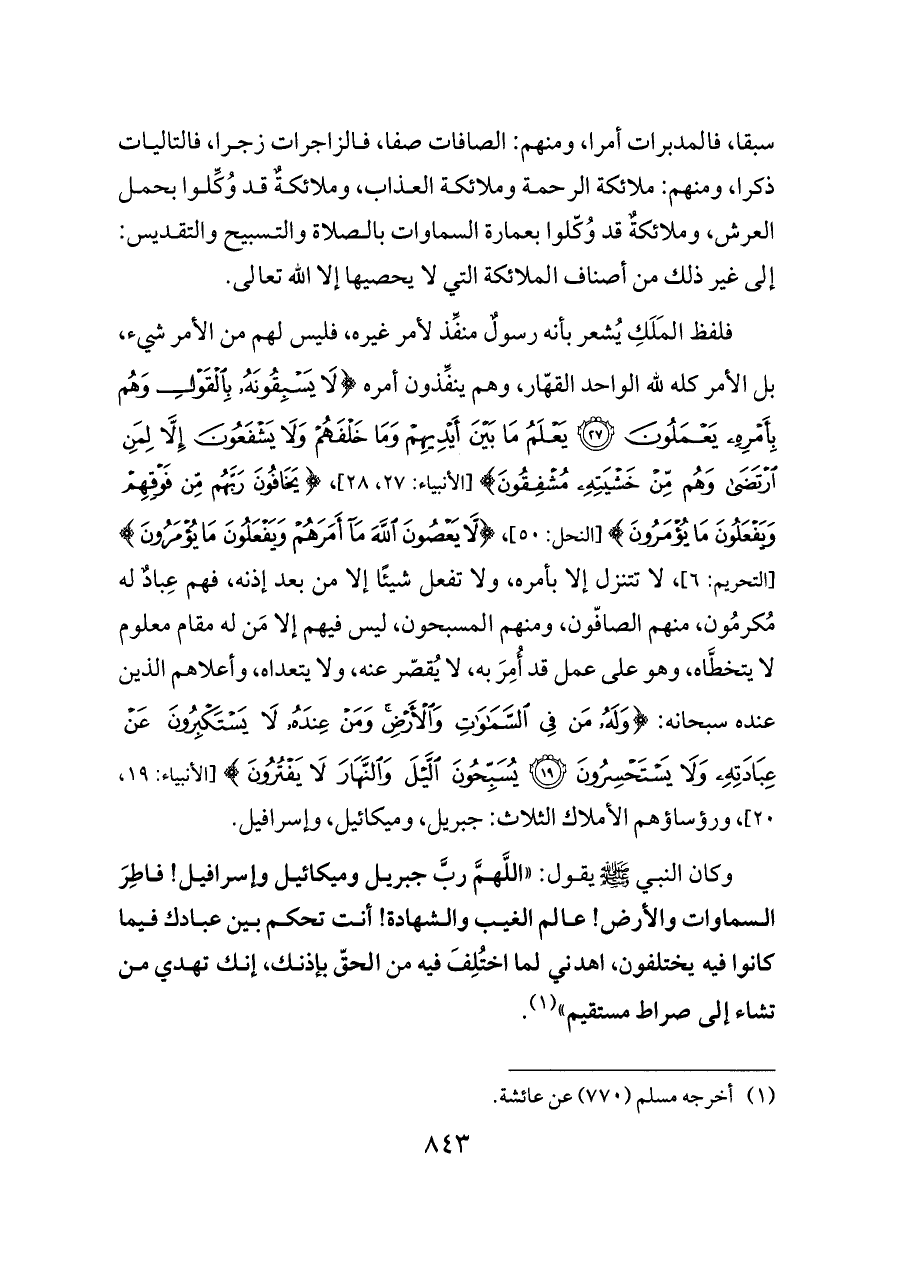 سبقا، فالمدبرات أمرا، ومنهم: الصافات صفا، فالزاجرات زجرا، فالتاليات
ذكرا، ومنهم: ملائكة الرحمة وملائكة العذاب، وملائكةٌ قد وُكِّلوا بحمل
العرش، وملائكةٌ قد وُكّلوا بعمارة السماوات بالصلاة والتسبيح والتقديس:
إلى غير ذلك من أصناف الملائكة التي لا يحصيها إلا الله تعالى.
فلفظ المَلَكِ يُشعر بأنه رسولٌ منفِّذ لأمر غيره، فليس لهم من الأمر شيء،
بل الأمر كله لله الواحد القهّار، وهم ينفِّذون أمره ﴿لَا يَسْبِقُونَهُۥ بِٱلْقَوْلِ وَهُم
بِأَمْرِهِۦ يَعْمَلُونَ ﴿٢٧﴾ يَعْلَمُ مَا بَيْنَ أَيْدِيهِمْ وَمَا خَلْفَهُمْ وَلَا يَشْفَعُونَ إِلَّا لِمَنِ
ٱرْتَضَىٰ وَهُم مِّنْ خَشْيَتِهِۦ مُشْفِقُونَ﴾ [الأنبياء: ٢٧، ٢٨]، ﴿يَخَافُونَ رَبَّهُم مِّن فَوْقِهِمْ
وَيَفْعَلُونَ مَا يُؤْمَرُونَ﴾ [النحل: ٥٠]، ﴿لَّا يَعْصُونَ ٱللَّهَ مَآ أَمَرَهُمْ وَيَفْعَلُونَ مَا يُؤْمَرُونَ﴾
[التحريم: ٦]، لا تتنزل إلا بأمره، ولا تفعل شيئًا إلا من بعد إذنه، فهم عِبادٌ له
مُكرمُون، منهم الصافّون، ومنهم المسبحون، ليس فيهم إلا مَن له مقام معلوم
لا يتخطَّاه، وهو على عمل قد أُمِرَ به، لا يُقصّر عنه، ولا يتعداه، وأعلاهم الذين
عنده سبحانه: ﴿وَلَهُۥ مَن فِى ٱلسَّمَٰوَٰتِ وَٱلْأَرْضِ ۚ وَمَنْ عِندَهُۥ لَا يَسْتَكْبِرُونَ عَنْ
عِبَادَتِهِۦ وَلَا يَسْتَحْسِرُونَ ﴿١٩﴾ يُسَبِّحُونَ ٱلَّيْلَ وَٱلنَّهَارَ لَا يَفْتُرُونَ﴾ [الأنبياء: ١٩،
٢٠]، ورؤساؤهم الأملاك الثلاث: جبريل، وميكائيل، وإسرافيل.
وكان النبي ﷺ يقول: «اللَّهمَّ ربَّ جبريل وميكائيل وإسرافيل! فاطِرَ
السماوات والأرض! عالم الغيب والشهادة! أنت تحكم بين عبادك فيما
كانوا فيه يختلفون، اهدني لما اختُلِفَ فيه من الحقّ بإذنك، إنك تهدي من
تشاء إلى صراط مستقيم»(١).
(١) أخرجه مسلم (٧٧٠) عن عائشة.
٨٤٣